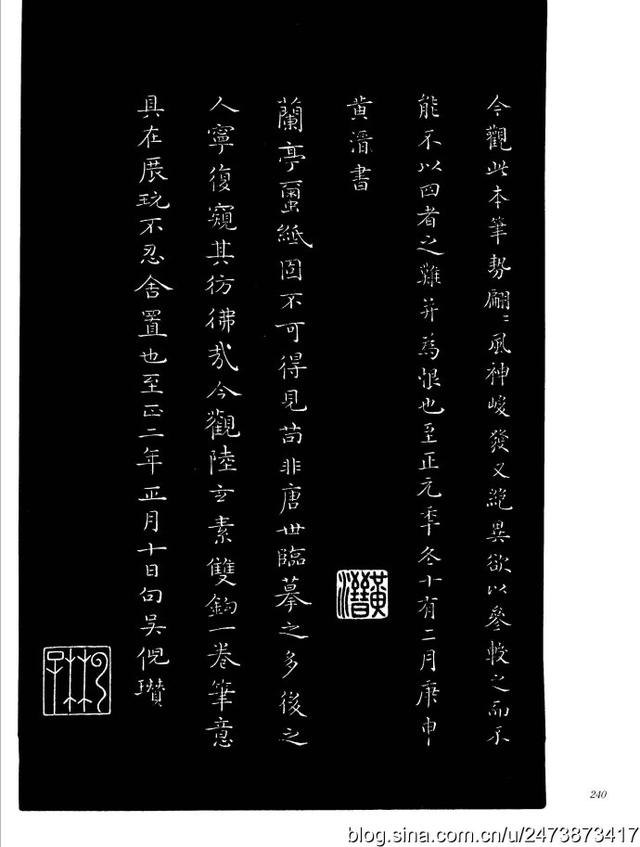 今觀此本筆勢翩〻風神峻發又絕異欲以參較之而不
能不以四者之難并為恨也至正元年冬十有二月庚申
黃溍書
黃溍
蘭亭璽紙固不可得見苟非唐世臨摹之多後之
人寧復窺其彷彿哉今觀陸玄素雙鉤一卷筆意
具在展玩不忍舍置也至正二年正月十日句吳倪瓚
240
blog.sina.com.cn/u/2473873417